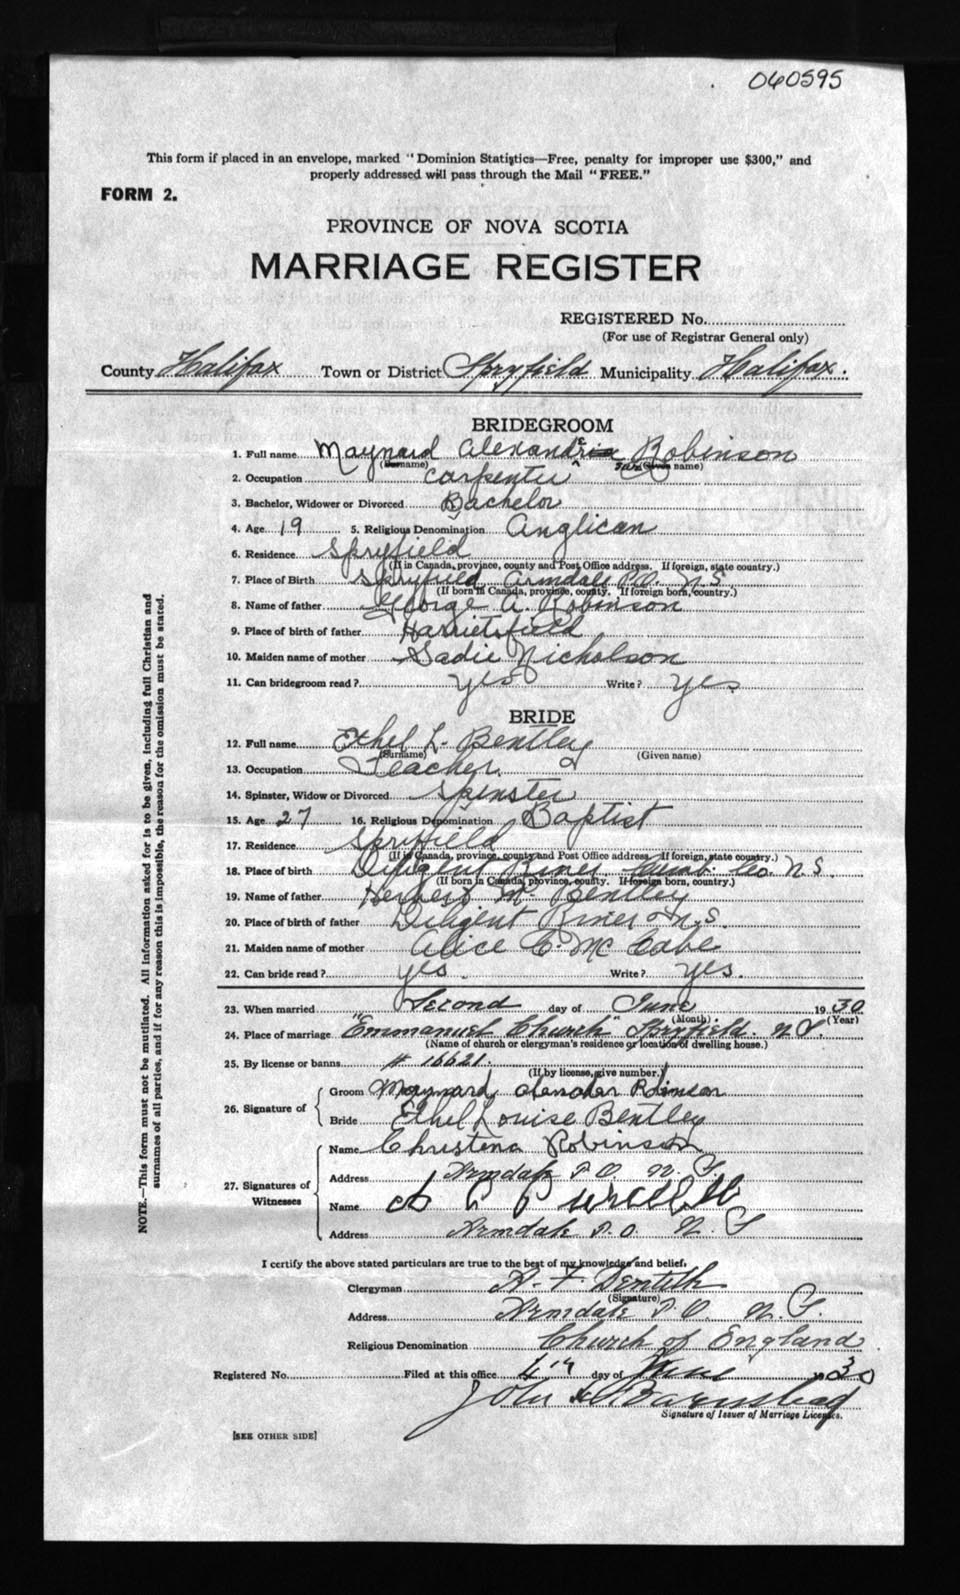 060595
This form if placed in an envelope, marked "Dominion Statistics—Free, penalty for improper use $300," and
properly addressed will pass through the Mail "FREE."
FORM 2.
PROVINCE OF NOVA SCOTIA
MARRIAGE REGISTER
REGISTERED No.
(For use of Registrar General only)
County Halifax Town or District Spryfield Municipality Halifax.
BRIDEGROOM
1. Full name Maynard Alexander Robinson
(Surname) (Given name)
2. Occupation Carpenter
3. Bachelor, Widower or Divorced Bachelor
4. Age 19 5. Religious Denomination Anglican
6. Residence Spryfield
(If in Canada, province, county and Post Office address. If foreign, state country.)
7. Place of Birth Spryfield Armdale P.O. N.S.
(If born in Canada, province, county. If foreign born, country.)
8. Name of father George A. Robinson
9. Place of birth of father Harrietsfield
10. Maiden name of mother Sadie Nicholson
11. Can bridegroom read? yes Write? yes
BRIDE
12. Full name Ethel L. Bentley
(Surname) (Given name)
13. Occupation Teacher.
14. Spinster, Widow or Divorced Spinster
15. Age 27 16. Religious Denomination Baptist
17. Residence Spryfield
(If in Canada, province, county and Post Office address. If foreign, state country.)
18. Place of birth Diligent River. Cumb. Co. N.S.
(If born in Canada, province, county. If foreign born, country.)
19. Name of father Herbert M. Bentley
20. Place of birth of father Diligent River N.S.
21. Maiden name of mother Alice C. McCabe
22. Can bride read? yes. Write? yes.
23. When married Second day of June 1930
(Month) (Year)
24. Place of marriage "Emmanuel Church" Spryfield. N.S.
(Name of church or clergyman's residence or location of dwelling house.)
25. By license or banns # 16621.
(If by license, give number.)
26. Signature of Groom Maynard Alexander Robinson
Bride Ethel Louise Bentley
27. Signatures of Witnesses
Name Christena Robinson
Address Armdale P.O. N.S.
Name
Address Armdale P.O. N.S
I certify the above stated particulars are true to the best of my knowledge and belief.
Clergyman A. F. Dentith
(Signature)
Address Armdale P.O. N.S.
Religious Denomination Church of England
Registered No. Filed at this office 4th day of June 1930
John Barnstead
Signature of Issuer of Marriage Licenses.
[SEE OTHER SIDE]
NOTE.—This form must not be mutilated. All information asked for is to be given, including full Christian and
surnames of all parties, and if for any reason this is impossible, the reason for the omission must be stated.